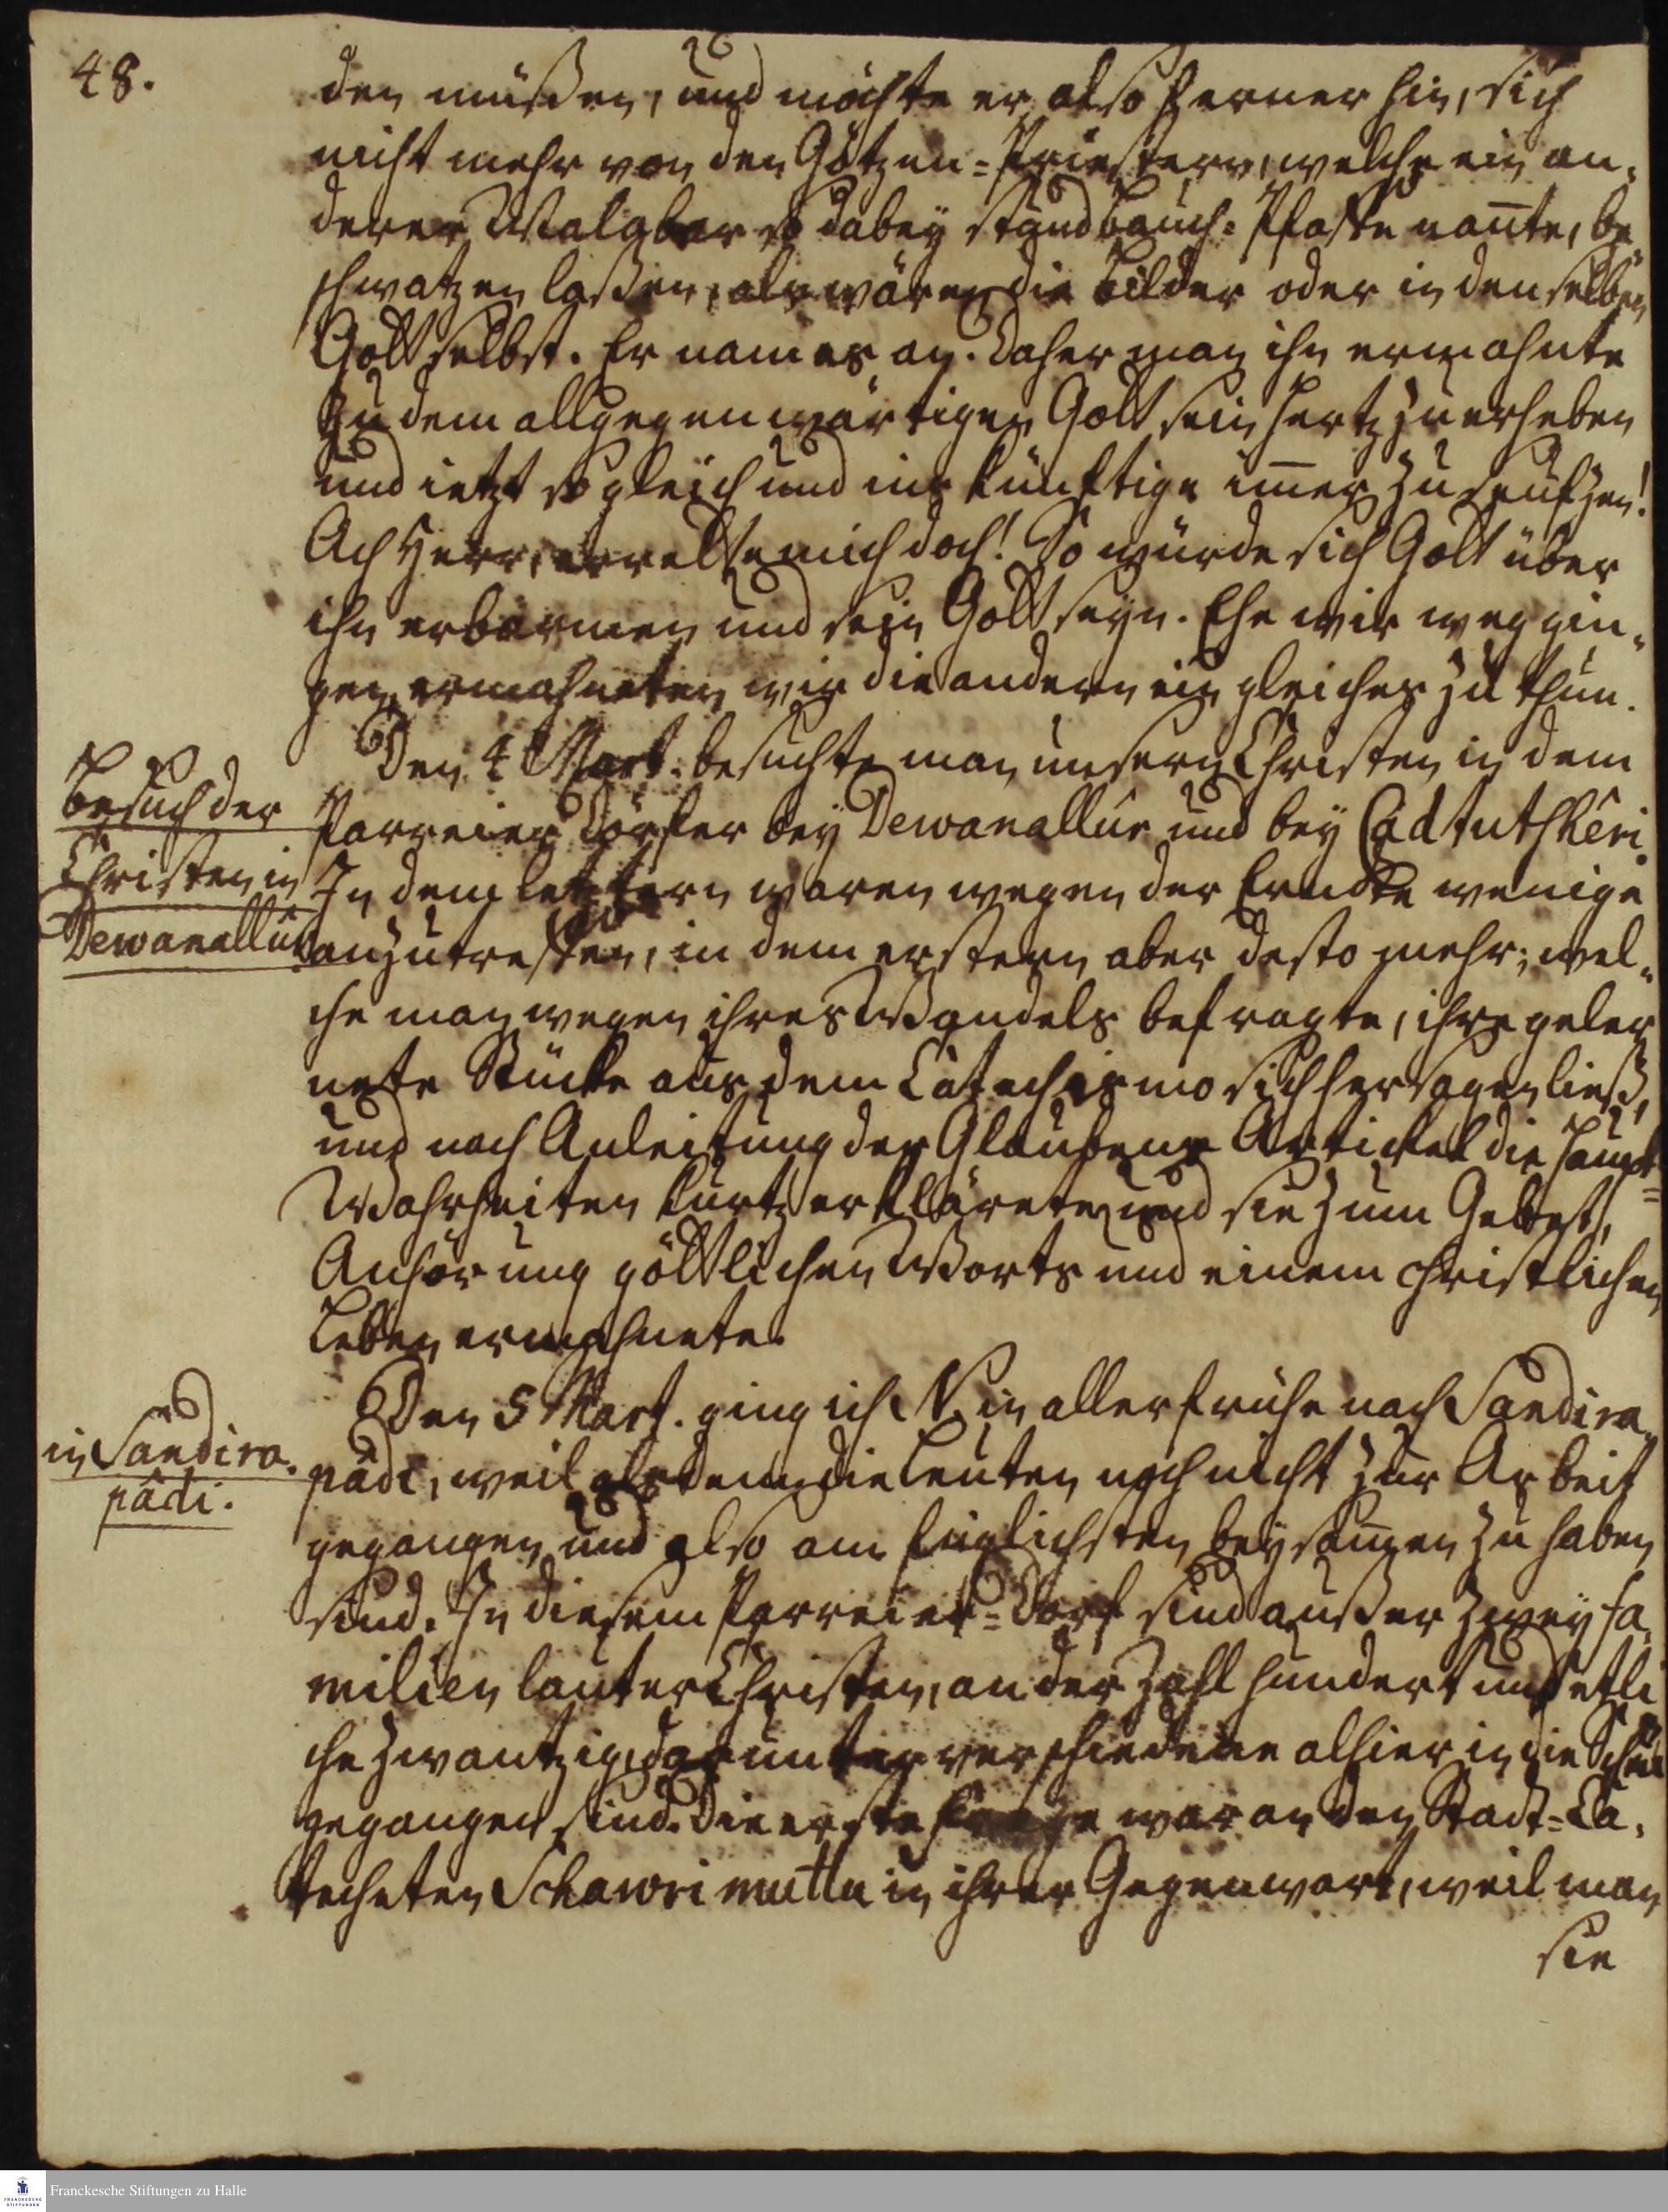 48.
den müßen, und möchte er also ferner hin, sich
nicht mehr von den Götzen-Priestern, welche ein an-
derer Malabar so dabey stand bauch-Pfaffen nan̄te, be-
schwatzen laßen, als wären die bilder oder in denselben
Gott selbst. Er nam es an. Daher man ihn ermahnte
zu dem allgegenwärtigen Gott sein Hertz zu erheben
und ietzt sogleich und ins künftige im̄er zu seufzen!
Ach Herr, errette mich doch! So würde sich Gott über
ihn erbarmen und sein Gott seyn. Ehe wir weg gin-
gen, ermahneten wir die andern ein gleiches zu thun.
Besuch der
Christen in
Dewanallûr.
Den 4 Mart. besuchte man unsern Christen in dem
Parreier Dörfer bey Dewanallûr und bey Cadtutshêri.
In dem letztern waren wegen der Erndte wenige
anzutreffen, in dem erstern aber desto mehr; wel-
che man wegen ihres Wandels befragte, ihre geler
nete Stücke aus dem Catechismo sich hersagen ließ,
und nach Anleitung der Glaubens Artickel die Haupt-
Wahrheiten kurtz erklärete und sie zum Gebet,
Anhörung göttlichen Worts und einem christlichen
Leben ermahnete.
in Sandira-
pâdi.
Den 5 Mart. ging ich N. in aller frühe nach Sandira-
pâdi, weil alsdenn die Leuten noch nicht zur Arbeit
gegangen und also am füglichsten beysam̄en zu haben
sind. In diesem Parreier-Dorf sind außer zwey Fa-
milien lauter Christen, an der Zahl hundert und etli
che zwantzig, darunter verschiedene alhier in die Schul
gegangen sind. Die erste Frage war an den Stadt-Ca-
techeten Schawrimuttu in ihrer Gegenwart, weil man
sie
Franckesche Stiftungen zu Halle